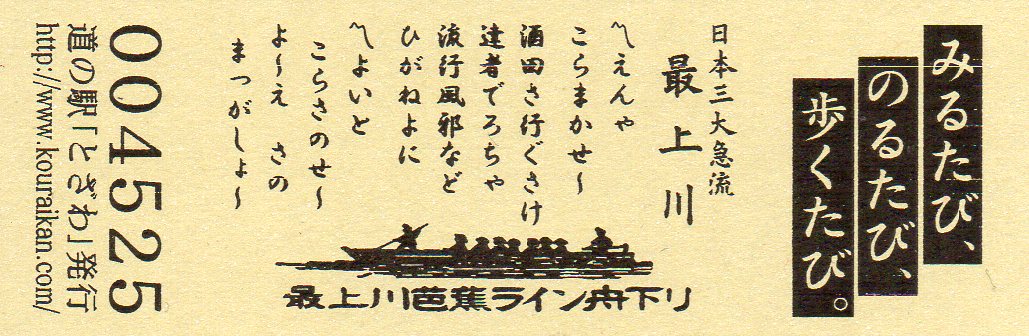 みるたび、
のるたび、
歩くたび。
日本三大急流
最上川
〽えんや
こらまかせ〜
酒田さ行ぐさけ
達者でろちゃ
流行風邪など
ひがねよに
〽よいと
こらさのせ〜
よ〜え さの
まつがしょ〜
最上川芭蕉ライン舟下り
004525
道の駅「とざわ」発行
http://www.kouraikan.com/